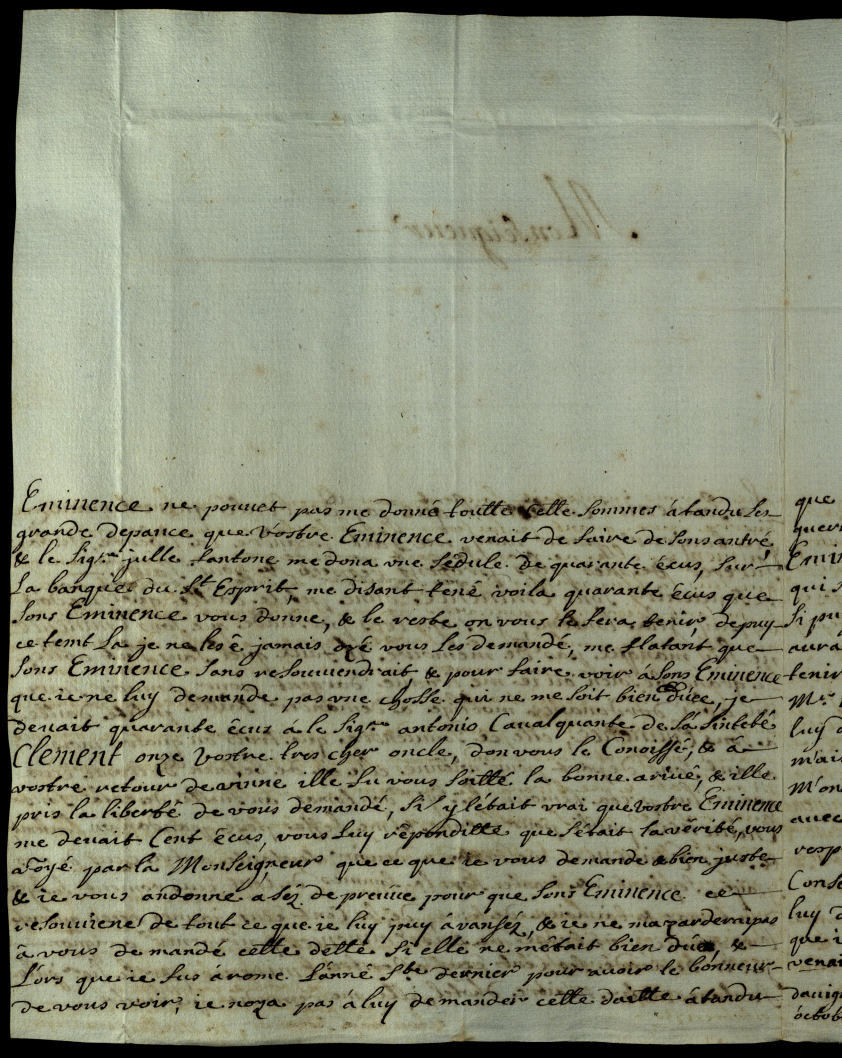 Monseigneur
Eminence ne pouvet pas me donné toutte cette sommes à tandu Les
grande depance que Vostre Eminence venait de faire de sons antré,
& le Sigr. julle fantone me dona vne sédule De quarante écus, sur
La banque du St Esprit, me disant tené voila quarante écus que
sons Eminence vous donne, & le reste on vous le fera tenir, depuy
ce temt La je ne les é jamais ozé vous Les demandé, me flatant que
sons Eminence sans resouviendrait & pour faire voir à sons Eminence
que ie ne luy demande pas vne chosse qui ne me soit bien düee, je
devait quarante écus à le Sigr. antonio Cavalquante de sa sinteté
Clement onze Vostre tres cher oncle, don vous le Conoissé, & à
vostre retour de vinne ille fu vous soitté la bonne arivé, & ille
pris la liberté de vous demandé, si s'y l'était vrai que vostre Eminence
me devait Cent écus, vous Luy réponditte que s'était la vérité, vous
voyé par la Monseigneur que ce que ie vous demande & bien juste
& ie vous andonne aséz de preuve pour que sons Eminence ce
resouviene de tout ce que ie luy puy avansez, & ie ne mazarderai pas
à vous demandé cette dette si elle ne m'était bien düe, &
Lors que ie fus à rome L'anné Ste dernier pour avoir le bonneur
de vous voir, ie noza pas à luy demander cette daitte à tandu
que
Emin
qui s
si pu
aura
tenir
luy d
mais
M'on
avec
resp
Conse
luy d
que i
venai
octob